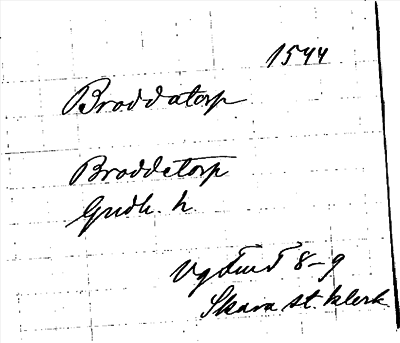 1544
Broddatorp
Broddetorp
Gudh. h.
Vg 8-9
Skara st. klerk